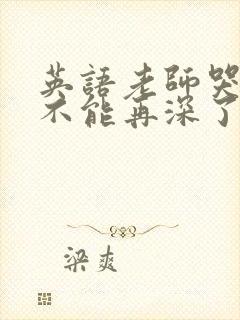 英語老師哭
不能再深了
梁爽